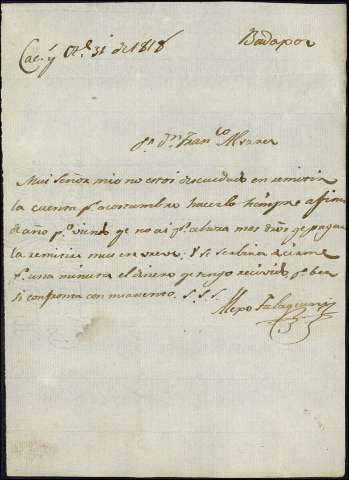 Cac.s y Oc.e 31 de 1818 Badajoz
S.r D.n Fran.co Alvarez
Mui Señor mio no estoi descuidado en remitir
la cuenta p.r acostumbro hacerlo siempre a fin
de año p.o viendo qe no ai p.r ahora mas dros qe pagar
la remitire mas en breve. Y se serbira decirme
p.r una minuta el dinero qe tengo recivido p.a ber
si confronta con mi asiento. S. S. S.